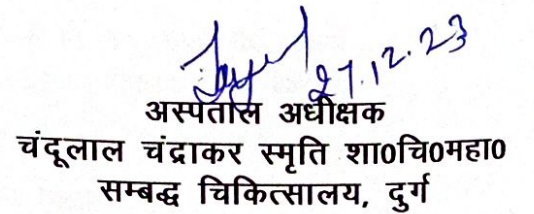 27.12.23
अस्पताल अधीक्षक
चंदूलाल चंद्राकर स्मृति शा0चि0महा0
सम्बद्ध चिकित्सालय, दुर्ग